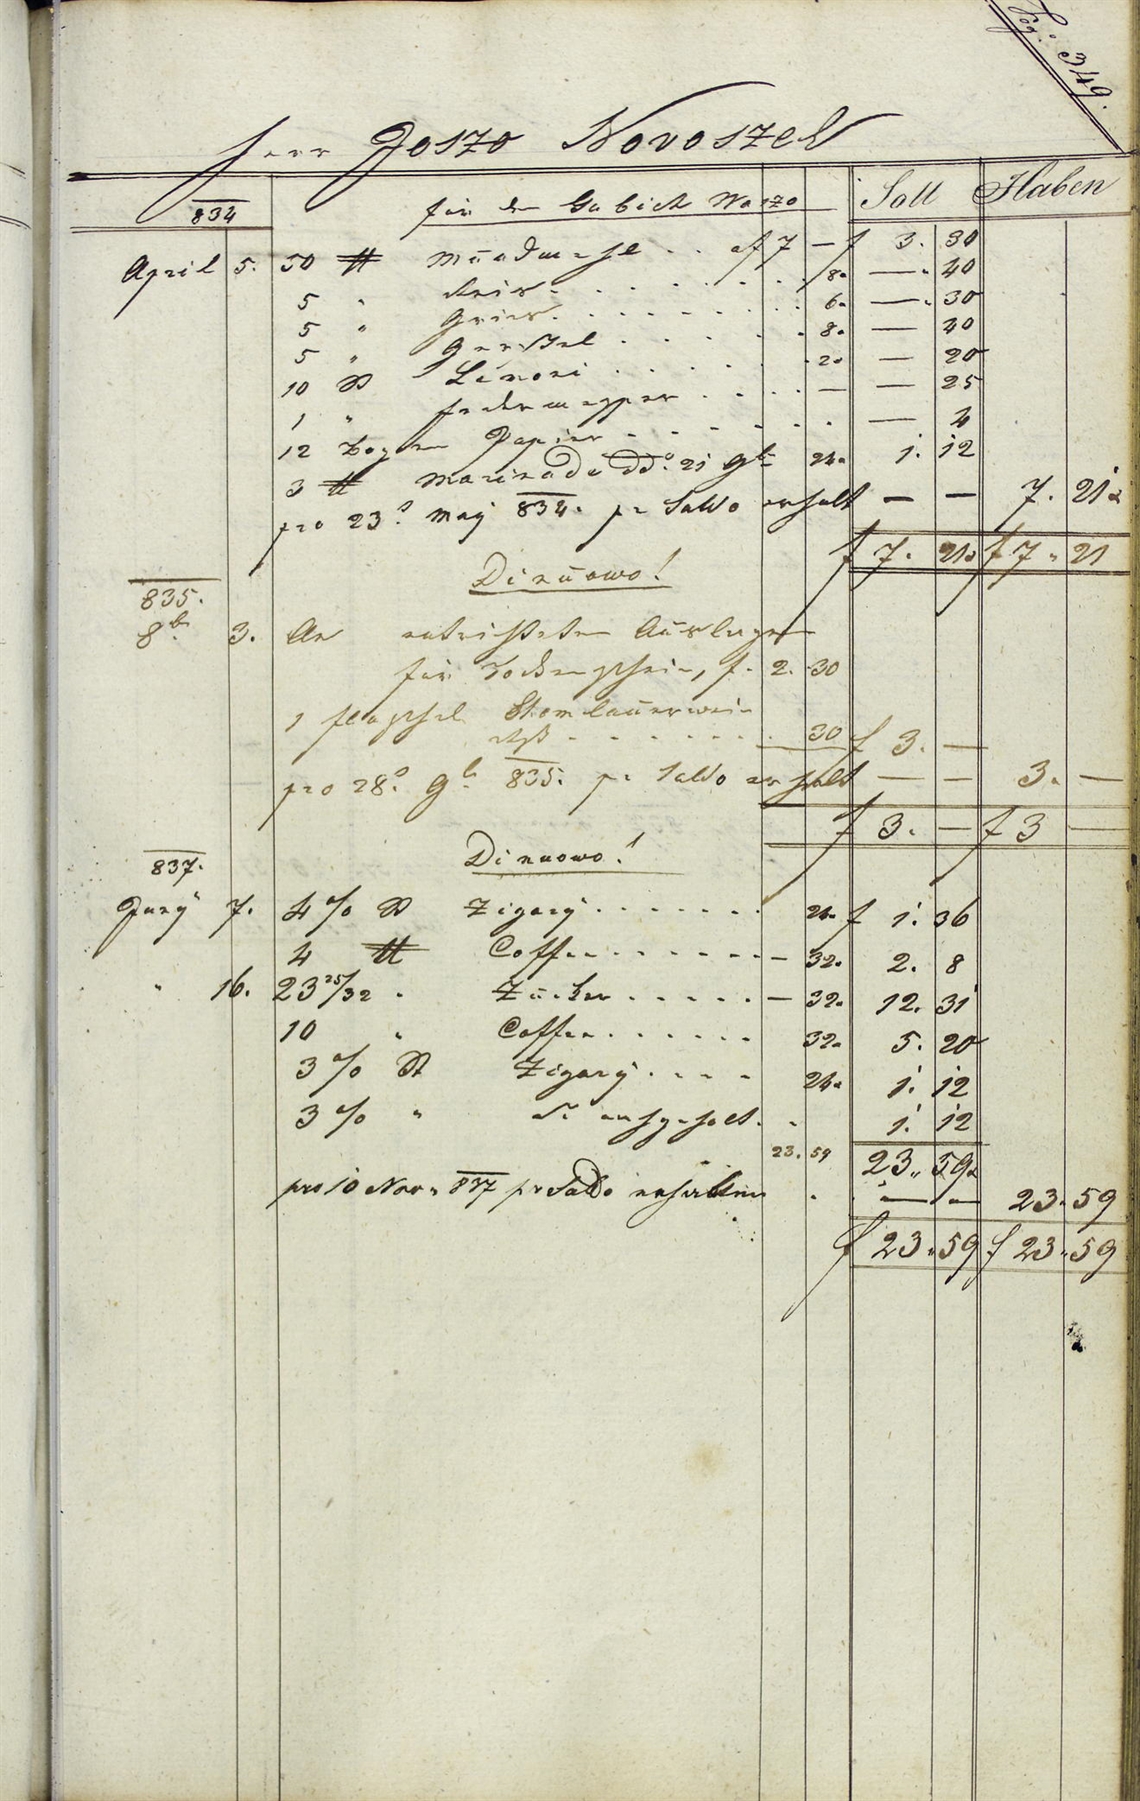 Pag: 349.
Herr Joszo Novoszel
Soll Haben
834 für den Gabich Waszo
April 5. 50 ℔ Mundmehl . . af 7 — f 3. 30
5 " Reis . . . . . . 8. — 40
5 " Gries . . . . . . 6. — 30
5 " Gerstel . . . . . 8. — 40
10 St Limoni . . . . . 2. — 20
1 " Federmesser . . . . — — 25
12 Bogen Papier . . . . . . — 4
3 ℔ Marinade dd: 21 9br 24. 1. 12
pro 23: May 834. pr Saldo erhalt — — 7. 21
f 7. 21 f 7. 21
Di nuowo!
835.
8br 3. An entrichteten Auslagen
für f. 2. 30
1
. . . . . . . 30 f 3. —
pro 28: 9b 835. pr Saldo erhalt — — 3. —
f 3. — f 3 —
Di nuowo!
837.
Juny 7. 4 % St Zigary . . . . . . . 24. f 1. 36
4 ℔ Coffee . . . . . . . — 32. 2. 8
" 16. 23 25/32 " Zucker . . . . . — 32. 12. 31
10 " Coffee . . . . . . 32. 5. 20
3 % St Zigary . . . . 24. 1. 12
3 % " " 1. 12
23. 59 23. 59
pro 10 Nov. 837 pr Saldo erhalten . — — 23. 59
f 23. 59 f 23. 59